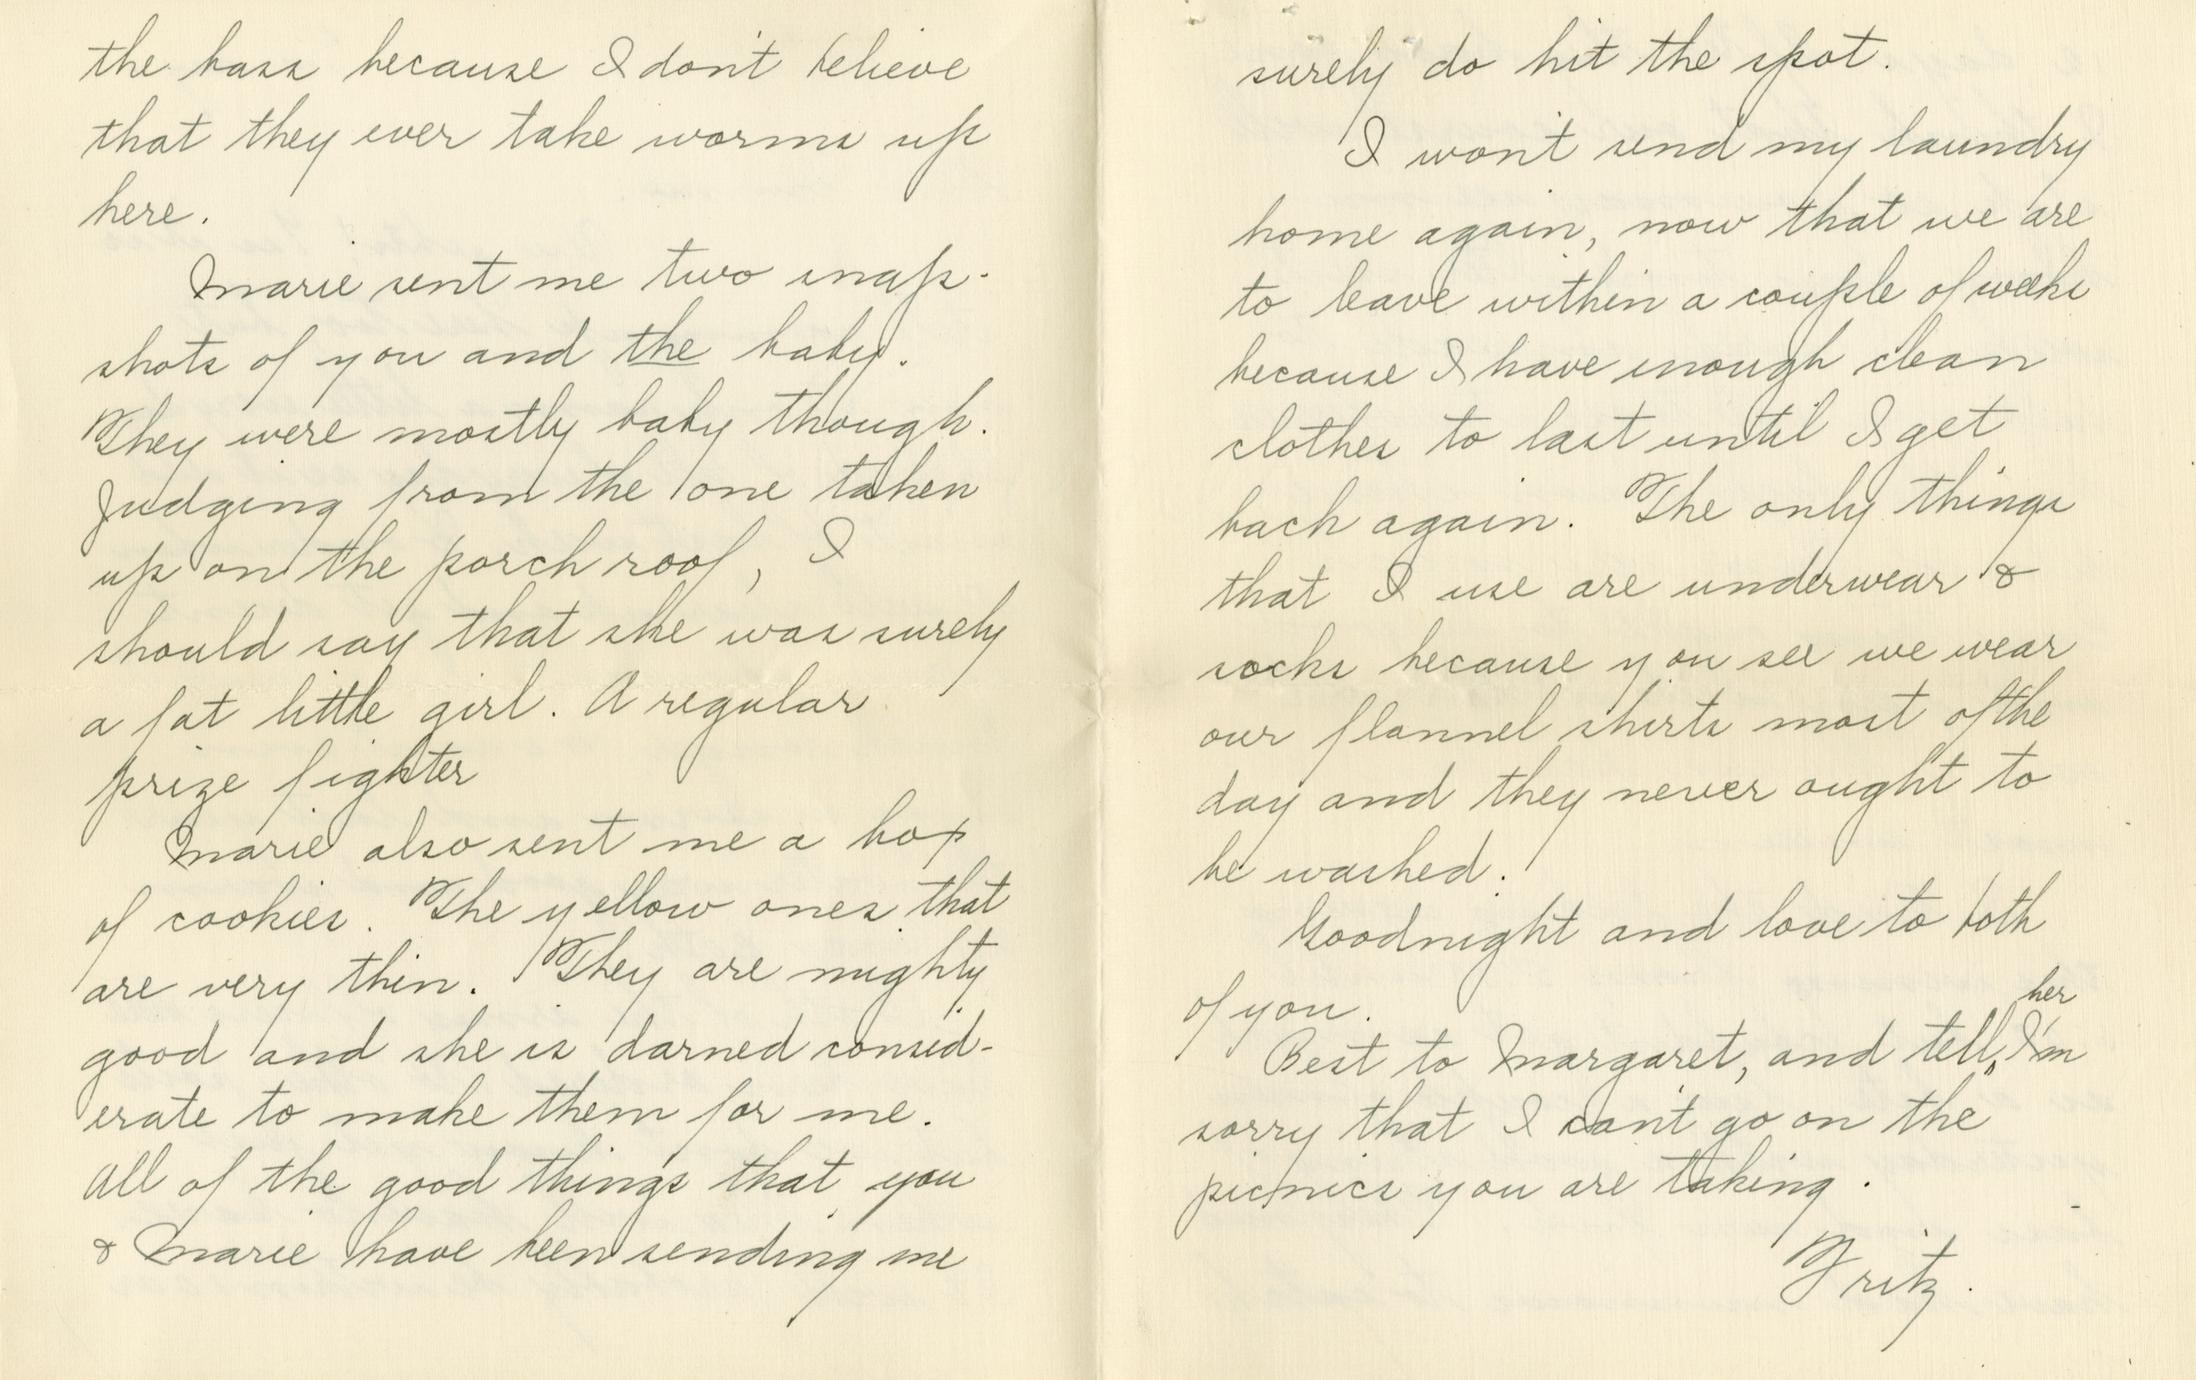 the bass because I don't believe
that they ever take worms up
here.
Marie sent me two snap-
shots of you and the baby.
They were mostly baby though.
Judging from the one taken
up on the porch roof, I
should say that she was surely
a fat little girl. A regular
prize fighter
Marie also sent me a box
of cookies. The yellow ones that
are very thin. They are mighty
good and she is darned consid-
erate to make them for me.
All of the good things that you
& Marie have been sending me
surely do hit the spot.
I won't send my laundry
home again, now that we are
to leave within a couple of weeks
because I have enough clean
clothes to last until I get
back again. The only things
that I use are underwear &
socks because you see we wear
our flannel shirts most of the
day and they never ought to
be washed.
Goodnight and love to both
of you.
Best to Margaret, and tell her I'm
sorry that I can't go on the
picnics you are taking.
Fritz.